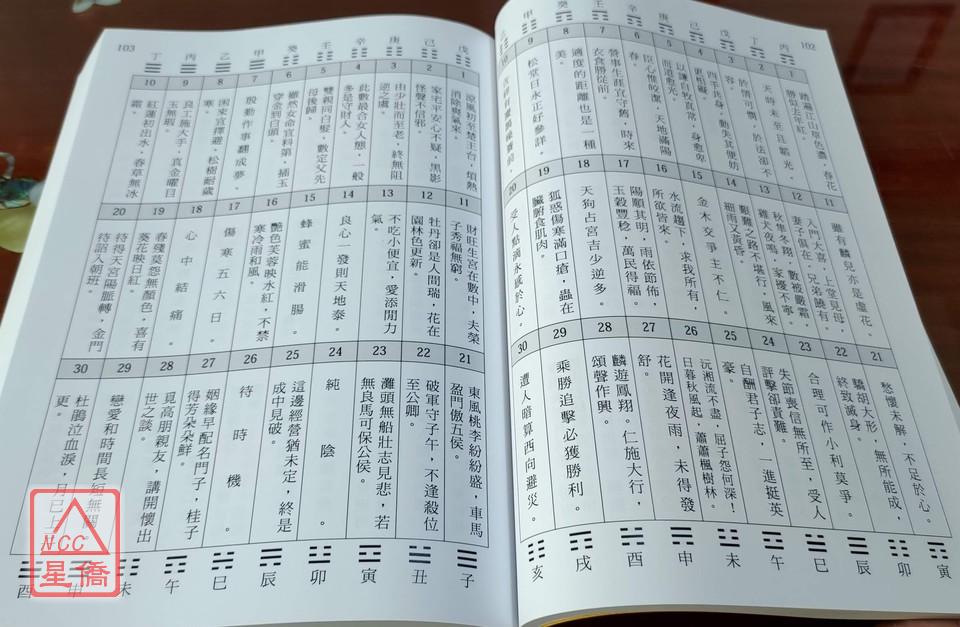 102
丙 丁 戊 己 庚 辛 壬 癸 甲
1 2 3 4 5 6 7 8 9
踏遍江山草色濃,春花勝似去年紅。
天時未至且韜光。
於情可憫,於法卻不容。
四手共身,動失其便妨
以謙自牧真常,身愈卑而道愈光。
臣心惟皎潔,天地滿陽春。
營事生涯宜守舊,時來衣食勝從前。
適度的距離也是一種美。
松堂日永正好參詳。
11 12 13 14 15 16 17 18 19 20
雖有麟兒亦是虛花。
入門大喜,上堂見母,妻子俱在,兄弟饒有,
秋隼冬翔,數被嚴霜,雞犬夜鳴,家擾不寧。
艱難之路不堪行,風來細雨又黃昏。
金木交爭主不仁。
水流趨下,求我所有,所欲皆來。
陽順其明,雨依節佈,玉穀豐稔,萬民得福。
天狗占宮吉少逆多。
狐惑傷寒滿口瘡,蟲在臟腑食肌肉。
受人點滴永感於心。
21 22 23 24 25 26 27 28 29 30
愁懷未解,不足於心。
驕胡大形,無所能成,終致滅身。
合理可作小利莫爭。
失節喪信無所至,受人評擊卻責難。
自酬君子志,一進挺英豪。
沅湘流不盡,屈子怨何深!日暮秋風起,蕭蕭楓樹林。
花開逢夜雨,未得發舒。
麟遊鳳翔。仁施大行,頌聲作興。
乘勝追擊必獲勝利。
遭人暗算西向避災。
寅 卯 辰 巳 午 未 申 酉 戌 亥
103
戊 己 庚 辛 壬 癸 甲 乙 丙 丁
1 2 3 4 5 6 7 8 9 10
涼風初至楚王台,煩熱消除爽氣來。
家宅平安心不疑,黑影怪聲不信邪。
由少壯而至老,終無阻逆之處。
此數最合女人態,一般多是守財人。
雙親同白髮,數定父先母後歸。
雖然女命官科第,插玉穿金到白頭。
殷勤作事翻成夢。
困來宜擇避,松樹耐歲寒。
良工施大手,真金曜日玉無瑕。
紅蓮初出水,春草無冰霜。
11 12 13 14 15 16 17 18 19 20
財旺生宮在數中,夫榮子秀福無窮。
牡丹卻是人間瑞,花在園林色更新。
不吃小便宜,愛添閒力氣。
良心一發則天地泰。
蜂蜜能滑腸。
艷色芙蓉映水紅,不禁寒冷雨和風。
傷寒五六日。
心中結痛。
春殘莫怨無顏色,喜有葵花映日紅。
待得天宮陽脈轉,金門待詔入朝班。
21 22 23 24 25 26 27 28 29 30
東風桃李紛紛盛,車馬盈門傲五侯。
破軍守子午,不逢殺位至公卿。
灘頭無船壯志見悲,若無良馬可保公侯。
純陰。
這邊經營猶未定,終是成中見破。
待時機。
姻緣早配名門子,桂子得芳朵朵鮮。
覓高朋親友,講開懷出世之談。
戀愛和時間長短無關。
杜鵑泣血淚,月已上更。
子 丑 寅 卯 辰 巳 午 未 申 酉
NCC
星僑